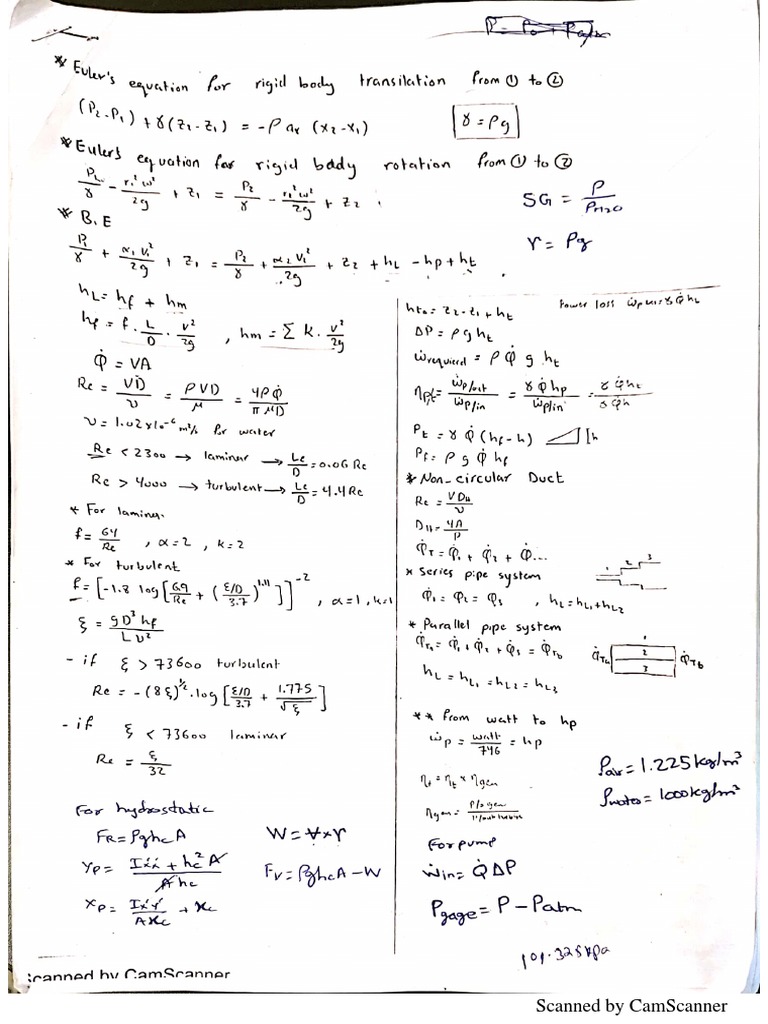 * Euler's equation for rigid body transilation from ① to ②
(P₂-P₁) + γ(z₂-z₁) = -ρ aₓ (x₂-x₁)
γ = ρg
* Euler's equation for rigid body rotation from ① to ②
P₁/γ - r₁²ω²/2g + z₁ = P₂/γ - r₂²ω²/2g + z₂
SG = ρ/ρH2O
γ = ρg
* B.E
P₁/γ + α₁V₁²/2g + z₁ = P₂/γ + α₂V₂²/2g + z₂ + hL - hp + ht
hL = hf + hm
hf = f · L/D · v²/2g , hm = Σ k · v²/2g
Q̇ = VA
Re = VD/υ = ρVD/μ = 4ρQ̇/πμD
υ = 1.02x10⁻⁶ m²/s for water
Re < 2300 → laminar → Le/D = 0.06 Re
Re > 4000 → turbulent → Le/D = 4.4 Re
* For laminar
f = 64/Re , α = 2 , k = 2
* For turbulent
f = [-1.8 log[6.9/Re + (ε/D/3.7)^1.11]]^-2 , α = 1, k = 1
ξ = gD³hf/Lυ²
- if ξ > 73600 turbulent
Re = -(8ξ)^1/2 . log[ε/D/3.7 + 1.775/√ξ]
- if ξ < 73600 laminar
Re = ξ/32
For hydrostatic
FR = ρghcA
W = ∀ x γ
YP = Ix́x́ + hc²A/Ahc
FV = ρghcA - W
XP = Ix́ý/Axc + xc
Power loss
= z₂ - z₁ + ht
ΔP = ρ g ht
ẇrequired = ρ Q̇ g ht
= γ Q̇ hp/ẇp/in
Pt = γ Q̇ (hf - h)
h
Pf = ρ g Q̇ hf
* Non-circular Duct
Re = VDH/υ
DH = 4A/P
Q̇T = Q̇₁ + Q̇₂ + Q̇...
* Series pipe system
1 2 3
Q̇₁ = Q̇₂ = Q̇₃ , hL = hL1 + hL2
* Parallel pipe system
Q̇Ta = Q̇₁ + Q̇₂ + Q̇₃ = Q̇Tb
Q̇Ta 1 2 3 Q̇Tb
hL = hL1 = hL2 = hL3
** From watt to hp
ẇp = watt/746 = hp
ρair = 1.225 kg/m³
ρwater = 1000 kg/m³
ηt = ηt x ηgen
For pump
Ẇin = Q̇ ΔP
Pgage = P - Patm
101.325 kpa
Scanned by CamScanner
Scanned by CamScanner